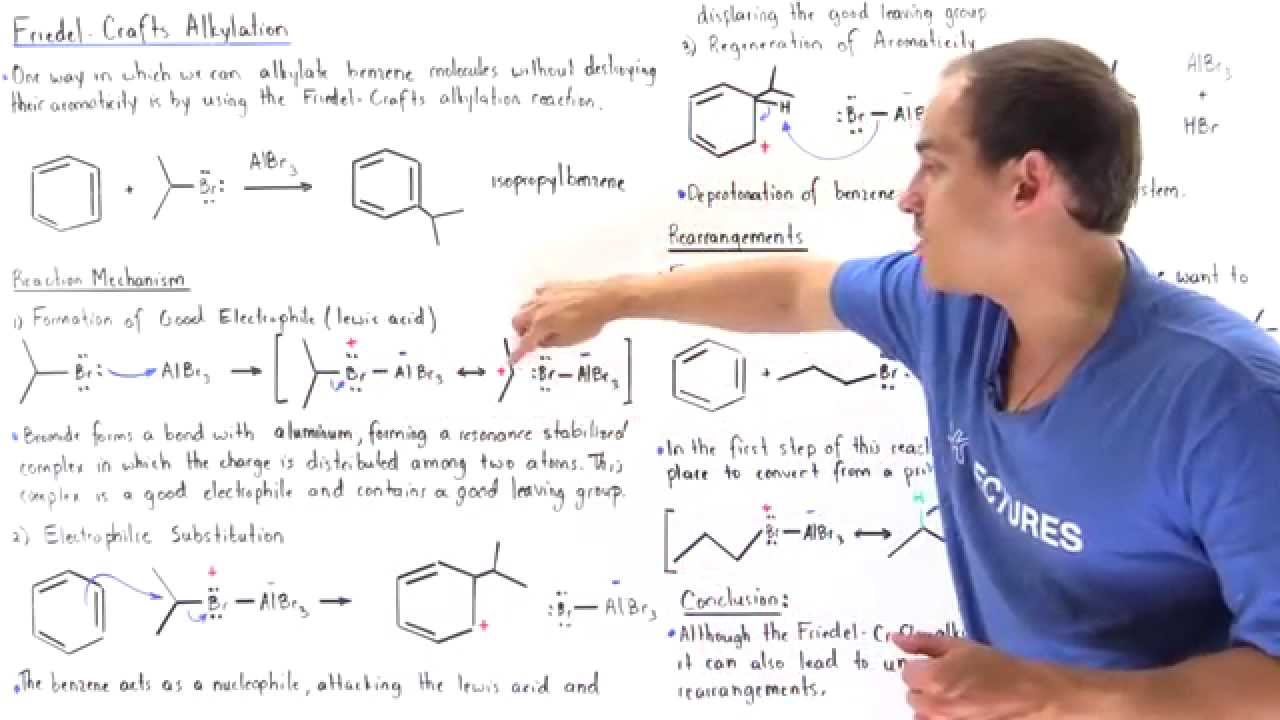 Friedel-Crafts Alkylation
• One way in which we can alkylate benzene molecules without destroying
their aromaticity is by using the Friedel-Crafts alkylation reaction.
+ Br: AlBr3 isopropylbenzene
Reaction Mechanism
1) Formation of Good Electrophile (lewis acid)
Br: AlBr3 [ + Br - AlBr3 + :Br - AlBr3 ]
• Bromide forms a bond with aluminum, forming a resonance stabilized
complex in which the charge is distributed among two atoms. This
complex is a good electrophile and contains a good leaving group.
2) Electrophilic Substitution
+ Br - AlBr3 + :Br - AlBr3
• The benzene acts as a nucleophile, attacking the lewis acid and
displacing the good leaving group
3) Regeneration of Aromaticity
H + :Br - AlB
AlBr3
+
HBr
• Deprotonation of benzene
Rearrangements
want to
+ Br
• In the first step of this
place to convert from a
[ + Br - AlBr3 H
Conclusion:
• Although the
it can also lead to
rearrangements.